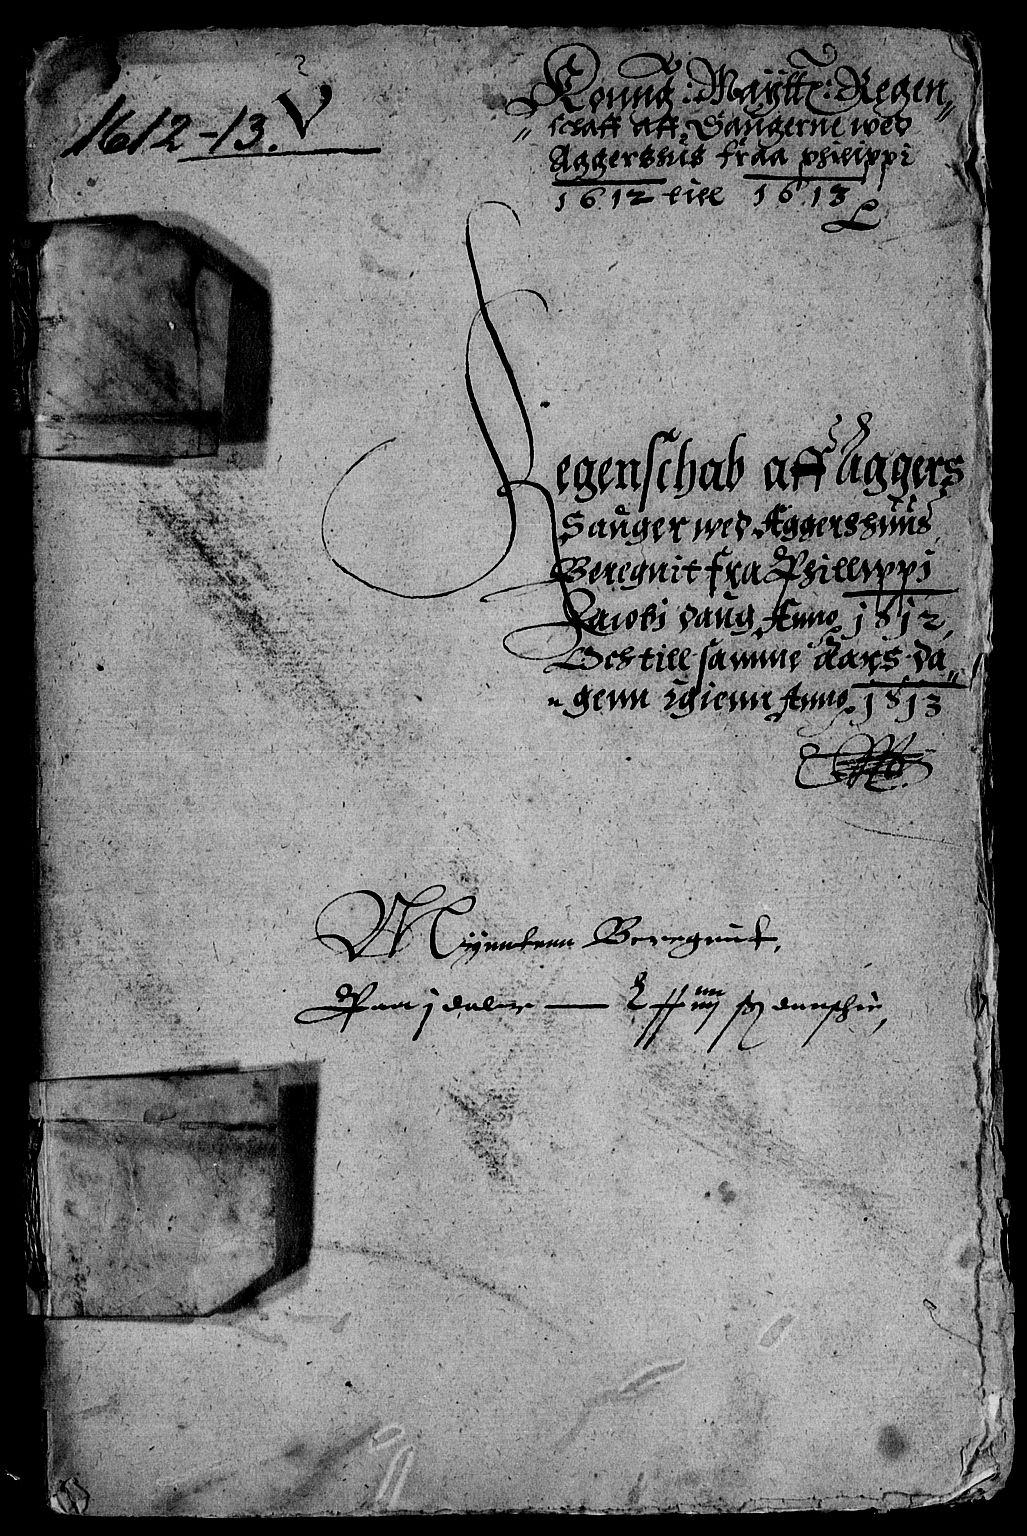 1612-13. V
Konng: Maÿtt: Regen„
„schaff aff, Saugerne wed
Aggershus fraa philippi
1612 till 1613
Regenschab aff Aggers
Sauger wed Aggershuus
Beregnit fra Phillippi
Jacobi daug Anno 1612,
Och till samme Aars da„
„genn igienn Anno, 1613
Mÿnntenn Beregnit,
Paa j daler —